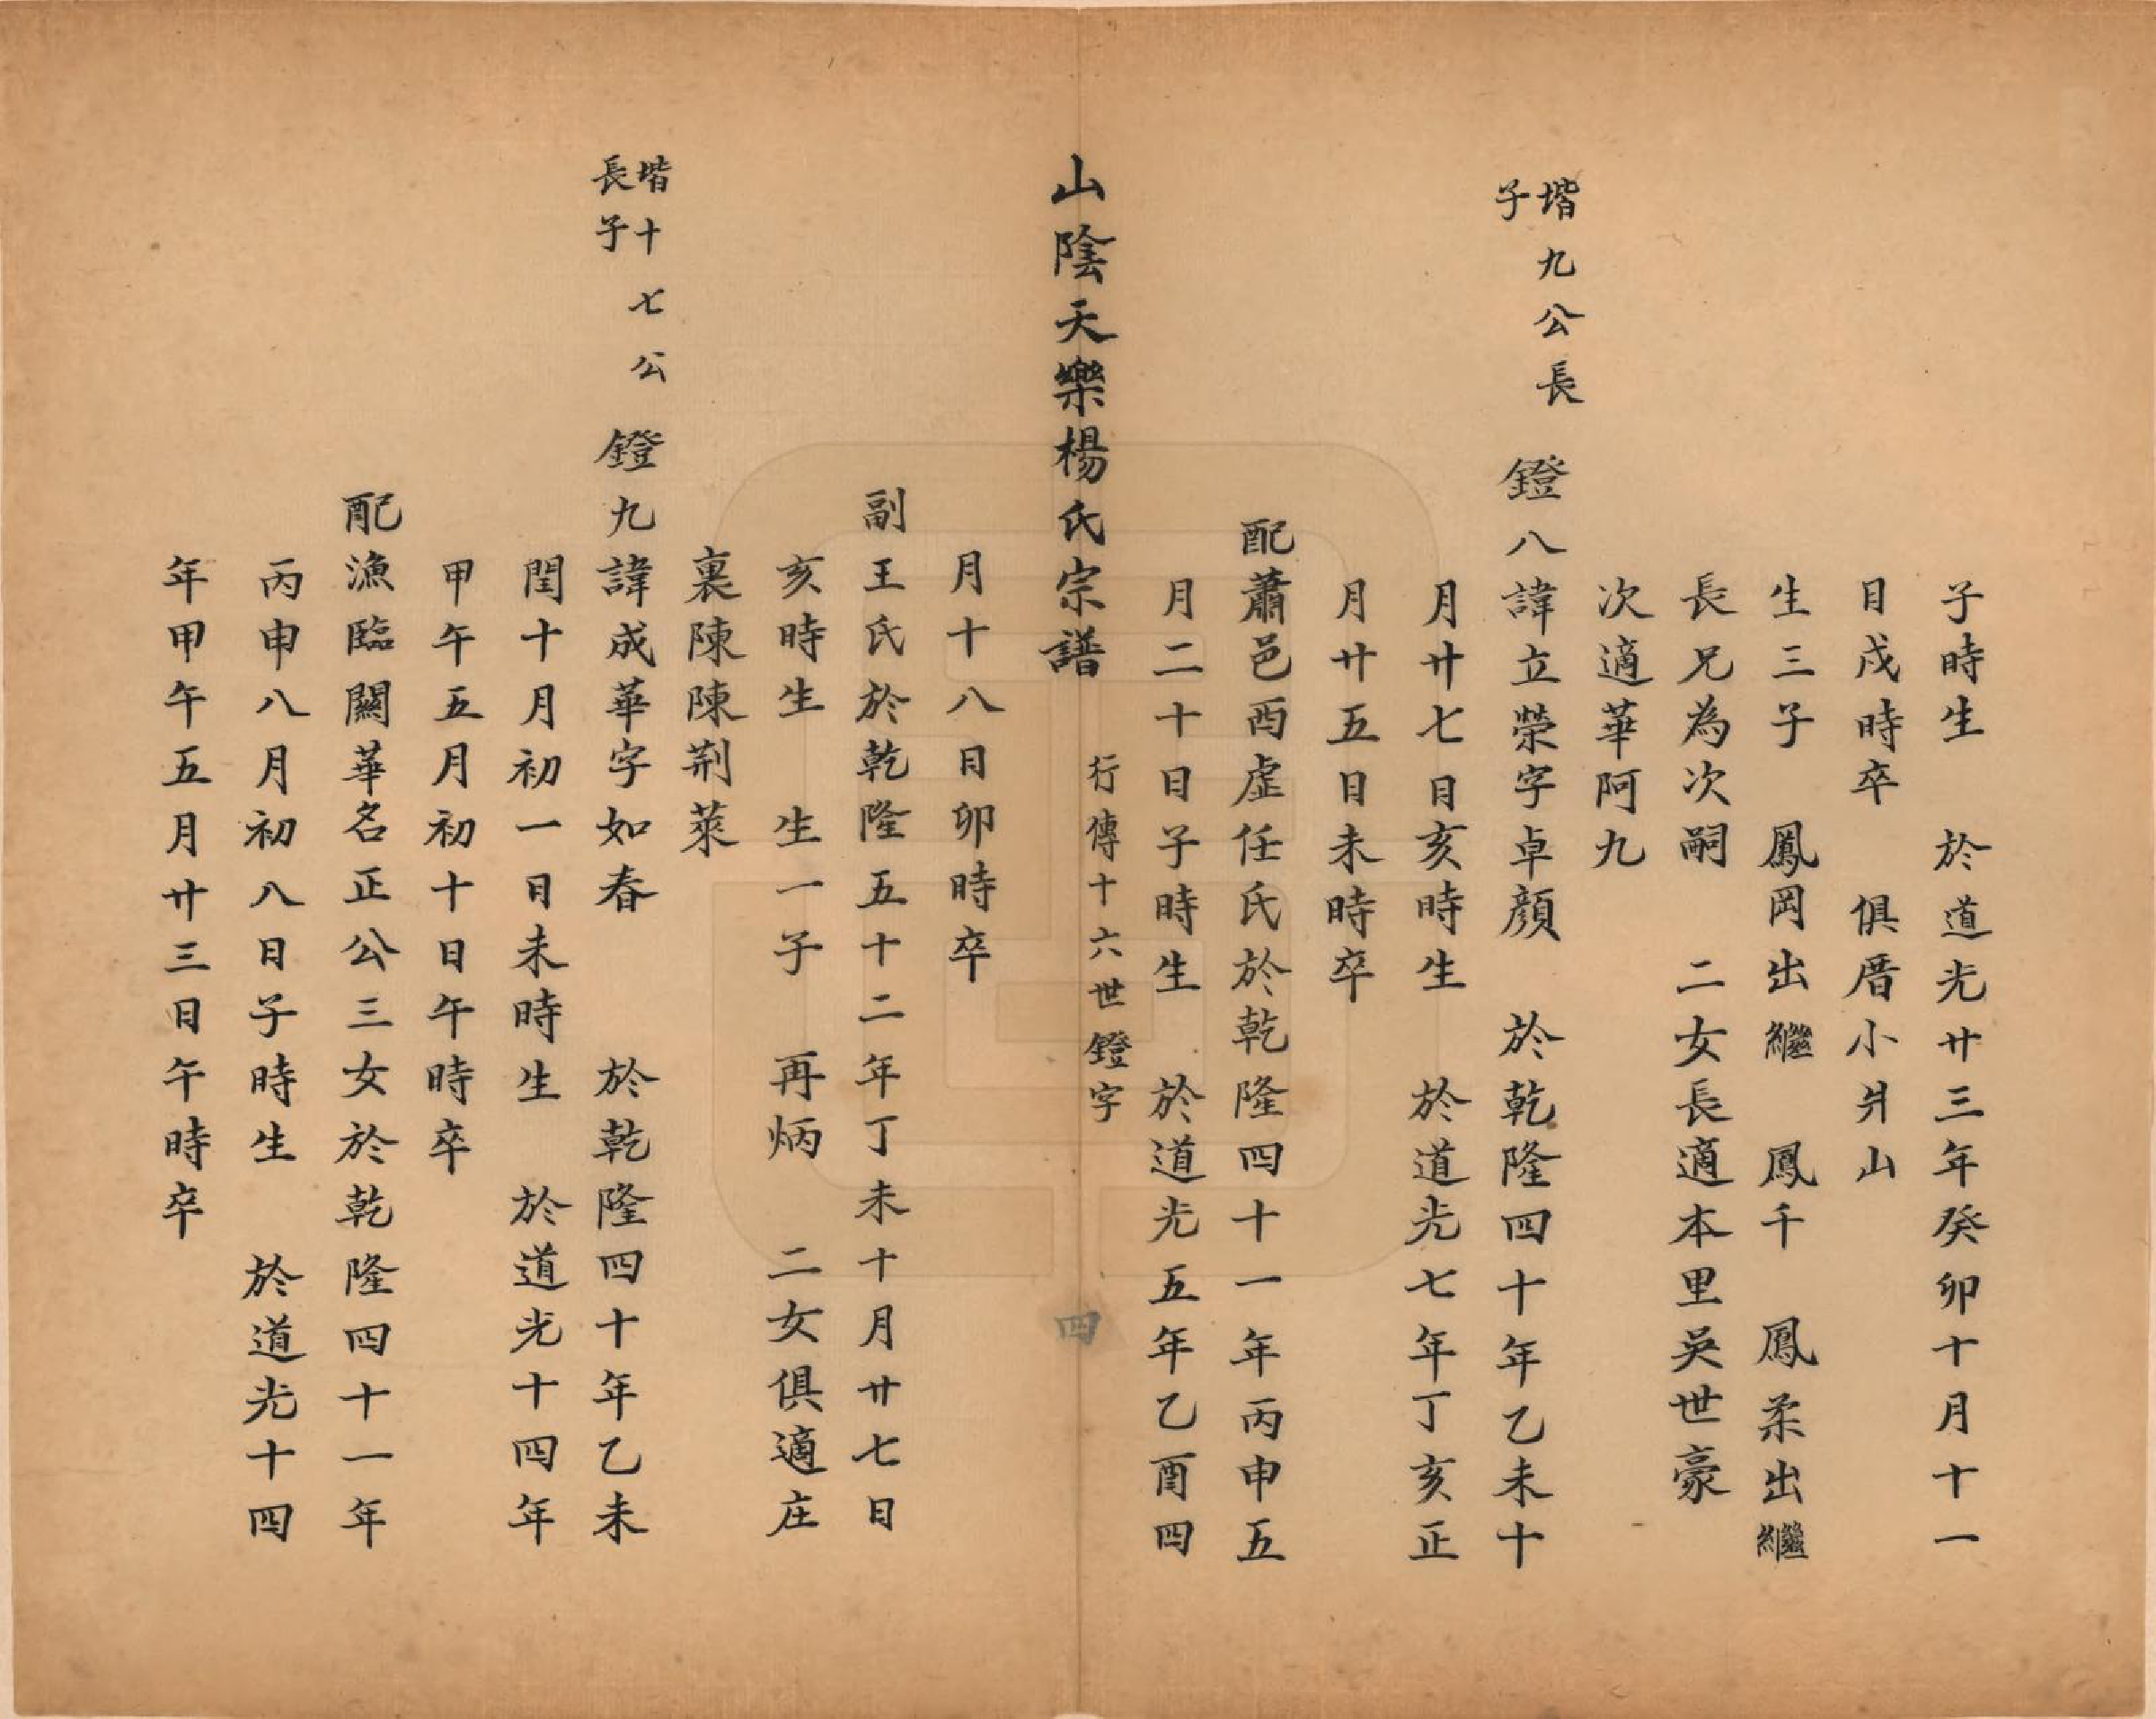 子時生　於道光廿三年癸卯十月十一
日戌時卒　俱厝小爿山
生三子　鳳岡出繼　鳳千　鳳柔出繼
長兄為次嗣　二女長適本里吳世豪
次適華阿九
堦九公長子　鐙八諱立榮字卓顏　於乾隆四十年乙未十
月廿七日亥時生　於道光七年丁亥正
月廿五日未時卒
配蕭邑酉虗任氏於乾隆四十一年丙申五
月二十日子時生　於道光五年乙酉四
山陰天樂楊氏宗譜　行傳十六世鐙字　四
月十八日卯時卒
副王氏於乾隆五十二年丁未十月廿七日
亥時生　生一子　再炳　二女俱適庄
裏陳陳荆萊
堦十七公長子　鐙九諱成華字如春　於乾隆四十年乙未
閏十月初一日未時生　於道光十四年
甲午五月初十日午時卒
配漁臨關華名正公三女於乾隆四十一年
丙申八月初八日子時生　於道光十四
年甲午五月廿三日午時卒